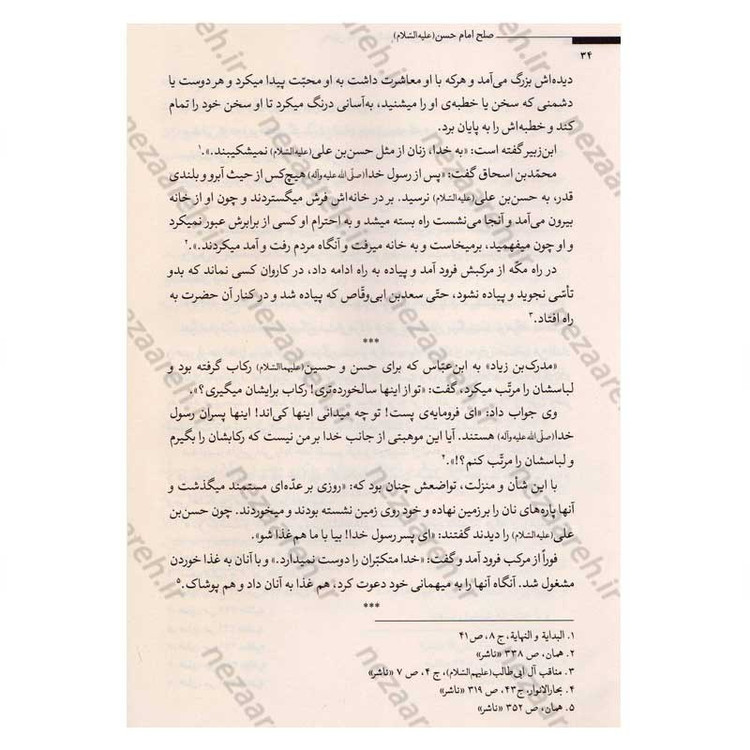 صلح امام حسن(علیه‌السّلام)
۳۴
دیده‌اش بزرگ می‌آمد و هرکه با او معاشرت داشت به او محبّت پیدا میکرد و هر دوست یا
دشمنی که سخن یا خطبه‌ی او را میشنید، به‌آسانی درنگ میکرد تا او سخن خود را تمام
کند و خطبه‌اش را به پایان برد.
ابن‌زبیر گفته است: «به خدا، زنان از مثل حسن‌بن علی(علیه‌السّلام) نمیشکیبند.».۱
محمّدبن اسحاق گفت: «پس از رسول خدا(صلّی‌الله‌علیه‌وآله) هیچ‌کس از حیث آبرو و بلندی
قدر، به حسن‌بن علی(علیه‌السّلام) نرسید. بر در خانه‌اش فرش میگستردند و چون او از خانه
بیرون می‌آمد و آنجا می‌نشست راه بسته میشد و به احترام او کسی از برابرش عبور نمیکرد
و او چون میفهمید، برمیخاست و به خانه میرفت و آنگاه مردم رفت و آمد میکردند.».۲
در راه مکّه از مرکبش فرود آمد و پیاده به راه ادامه داد، در کاروان کسی نماند که بدو
تأسّی نجوید و پیاده نشود، حتّی سعدبن ابی‌وقّاص که پیاده شد و در کنار آن حضرت به
راه افتاد.۳
***
«مدرک‌بن زیاد» به ابن‌عبّاس که برای حسن و حسین(علیهماالسّلام) رکاب گرفته بود و
لباسشان را مرتّب میکرد، گفت: «تو از اینها سالخورده‌تری! رکاب برایشان میگیری؟».
وی جواب داد: «ای فرومایه‌ی پست! تو چه میدانی اینها کی‌اند! اینها پسران رسول
خدا(صلّی‌الله‌علیه‌وآله) هستند. آیا این موهبتی از جانب خدا بر من نیست که رکابشان را بگیرم
و لباسشان را مرتّب کنم؟!».۴
با این شأن و منزلت، تواضعش چنان بود که: «روزی بر عدّه‌ای مستمند میگذشت و
آنها پاره‌های نان را بر زمین نهاده و خود روی زمین نشسته بودند و میخوردند. چون حسن‌بن
علی(علیه‌السّلام) را دیدند گفتند: «ای پسر رسول خدا! بیا با ما هم غذا شو».
فوراً از مرکب فرود آمد و گفت: «خدا متکبّران را دوست نمیدارد.» و با آنان به غذا خوردن
مشغول شد. آنگاه آنها را به میهمانی خود دعوت کرد، هم غذا به آنان داد و هم پوشاک.۵
***
۱. البدایة و النهایة، ج ۸، ص ۴۱
۲. همان، ص ۳۳۸ «ناشر»
۳. مناقب آل ابی‌طالب(علیهم‌السّلام)، ج ۴، ص ۷ «ناشر»
۴. بحارالانوار، ج۴۳، ص ۳۱۹ «ناشر»
۵. همان، ص ۳۵۲ «ناشر»
nezaareh.ir